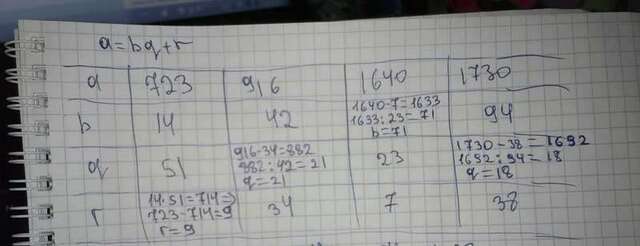 a=bq+r
a 723 916 1640 1730
b 14 42 1640-7=1633
1633:23=71
b=71 94
q 51 916-34=882
882:42=21
q=21 23 1730-38=1692
1692:94=18
q=18
r 14·51=714=>
723-714=9
r=9 34 7 38